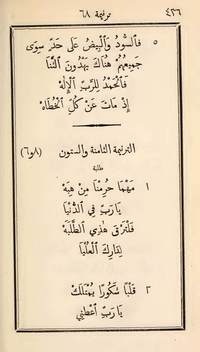 ٤٣٦ ترنيمة ٦٨
٥ فَالسُّودُ وَالْبِيضُ عَلَى حَدٍّ سِوَى
جَمِيعُهُمْ هُنَاكَ يُهْدُونَ الثَّنَا
فَالْحَمْدُ لِلرَّبِّ الْإِلٰهْ
إِذْ مَاتَ عَنْ كُلِّ الْخُطَاهْ
الترنيمة الثامنة والستون (٨و٦)
طلبة
١ مَهْمَا حُرِمْنَا مِنْ هِبَهْ
يَا رَبِّ فِي الدُّنْيَا
فَلْتَرْقَ هٰذِي الطَّلْبَهْ
لِدَارِكَ الْعُلْيَا
٢ قَلْبًا شَكُورًا يُمْتَلَكْ
يَا رَبِّ أَعْطِنِي